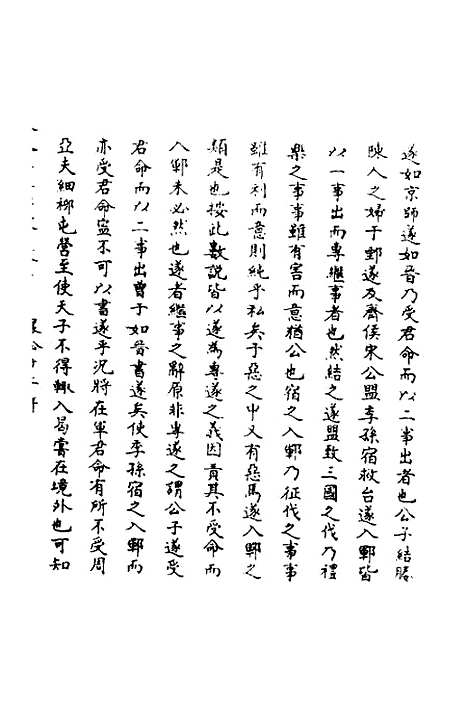 遂如京師遂如晉乃受君命而以二事出者也公子結媵
陳人之婦于鄄遂及齊侯宋公盟季孫宿救台遂入鄆皆
以一事出而專繼事者也然結之遂盟致三國之伐乃禮
樂之事事雖有害而意猶公也宿之入鄆乃征伐之事事
雖有利而意則純乎私矣于惡之中又有惡焉遂入鄆之
類是也按此數説皆以遂為專遂之義因責其不受命而
入鄆未必然也遂者繼事之辭原非專遂之謂公子遂受
君命而以二事出曹于如晉書遂矣使季孫宿之入鄆而
亦受君命寧不可以書遂乎況將在軍君命有所不受周
亞夫細柳屯營至使天子不得輒入曷嘗在境外也可知